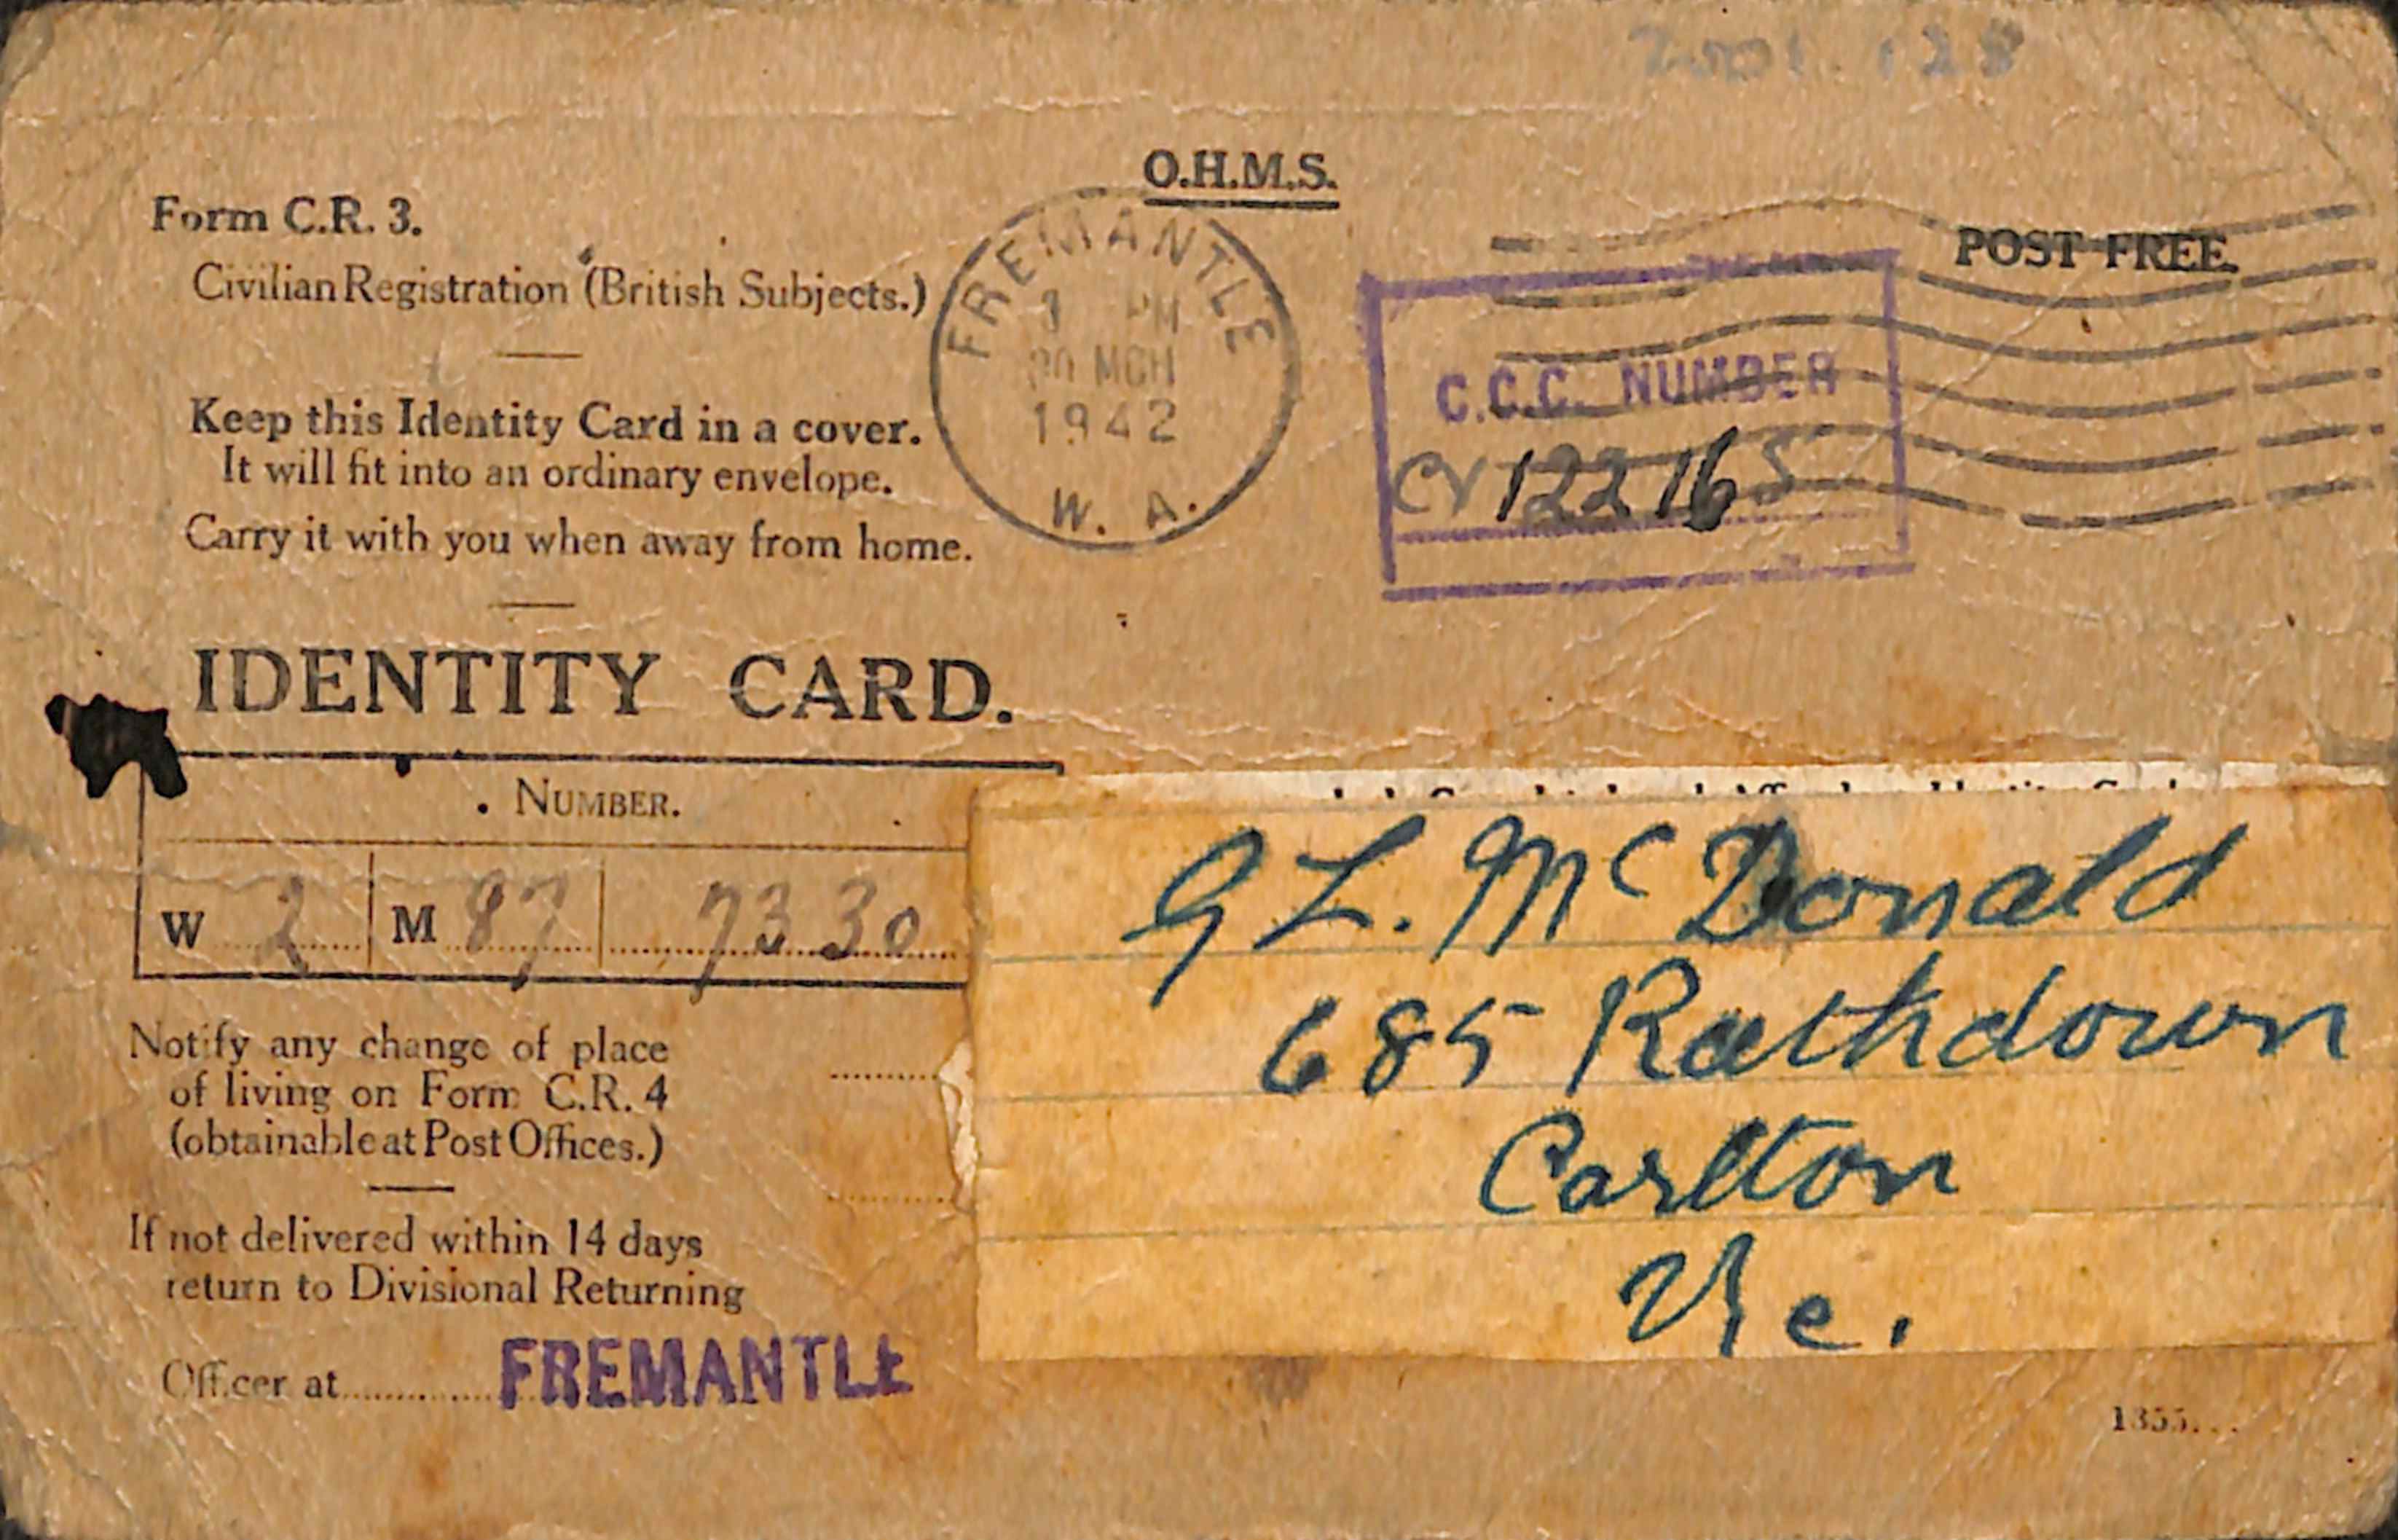 2001.128
O.H.M.S.
Form C.R. 3.
Civilian Registration (British Subjects.)
POST FREE.
FREMANTLE
PM
MCH
1942
W. A.
C.C.C. NUMBER
CV 122165
Keep this Identity Card in a cover.
It will fit into an ordinary envelope.
Carry it with you when away from home.
IDENTITY CARD.
NUMBER.
W 2 M 87 7330
G L. McDonald
685 Rathdown
Carlton
Vic.
Notify any change of place
of living on Form C.R. 4
(obtainable at Post Offices.)
If not delivered within 14 days
return to Divisional Returning
Officer at FREMANTLE